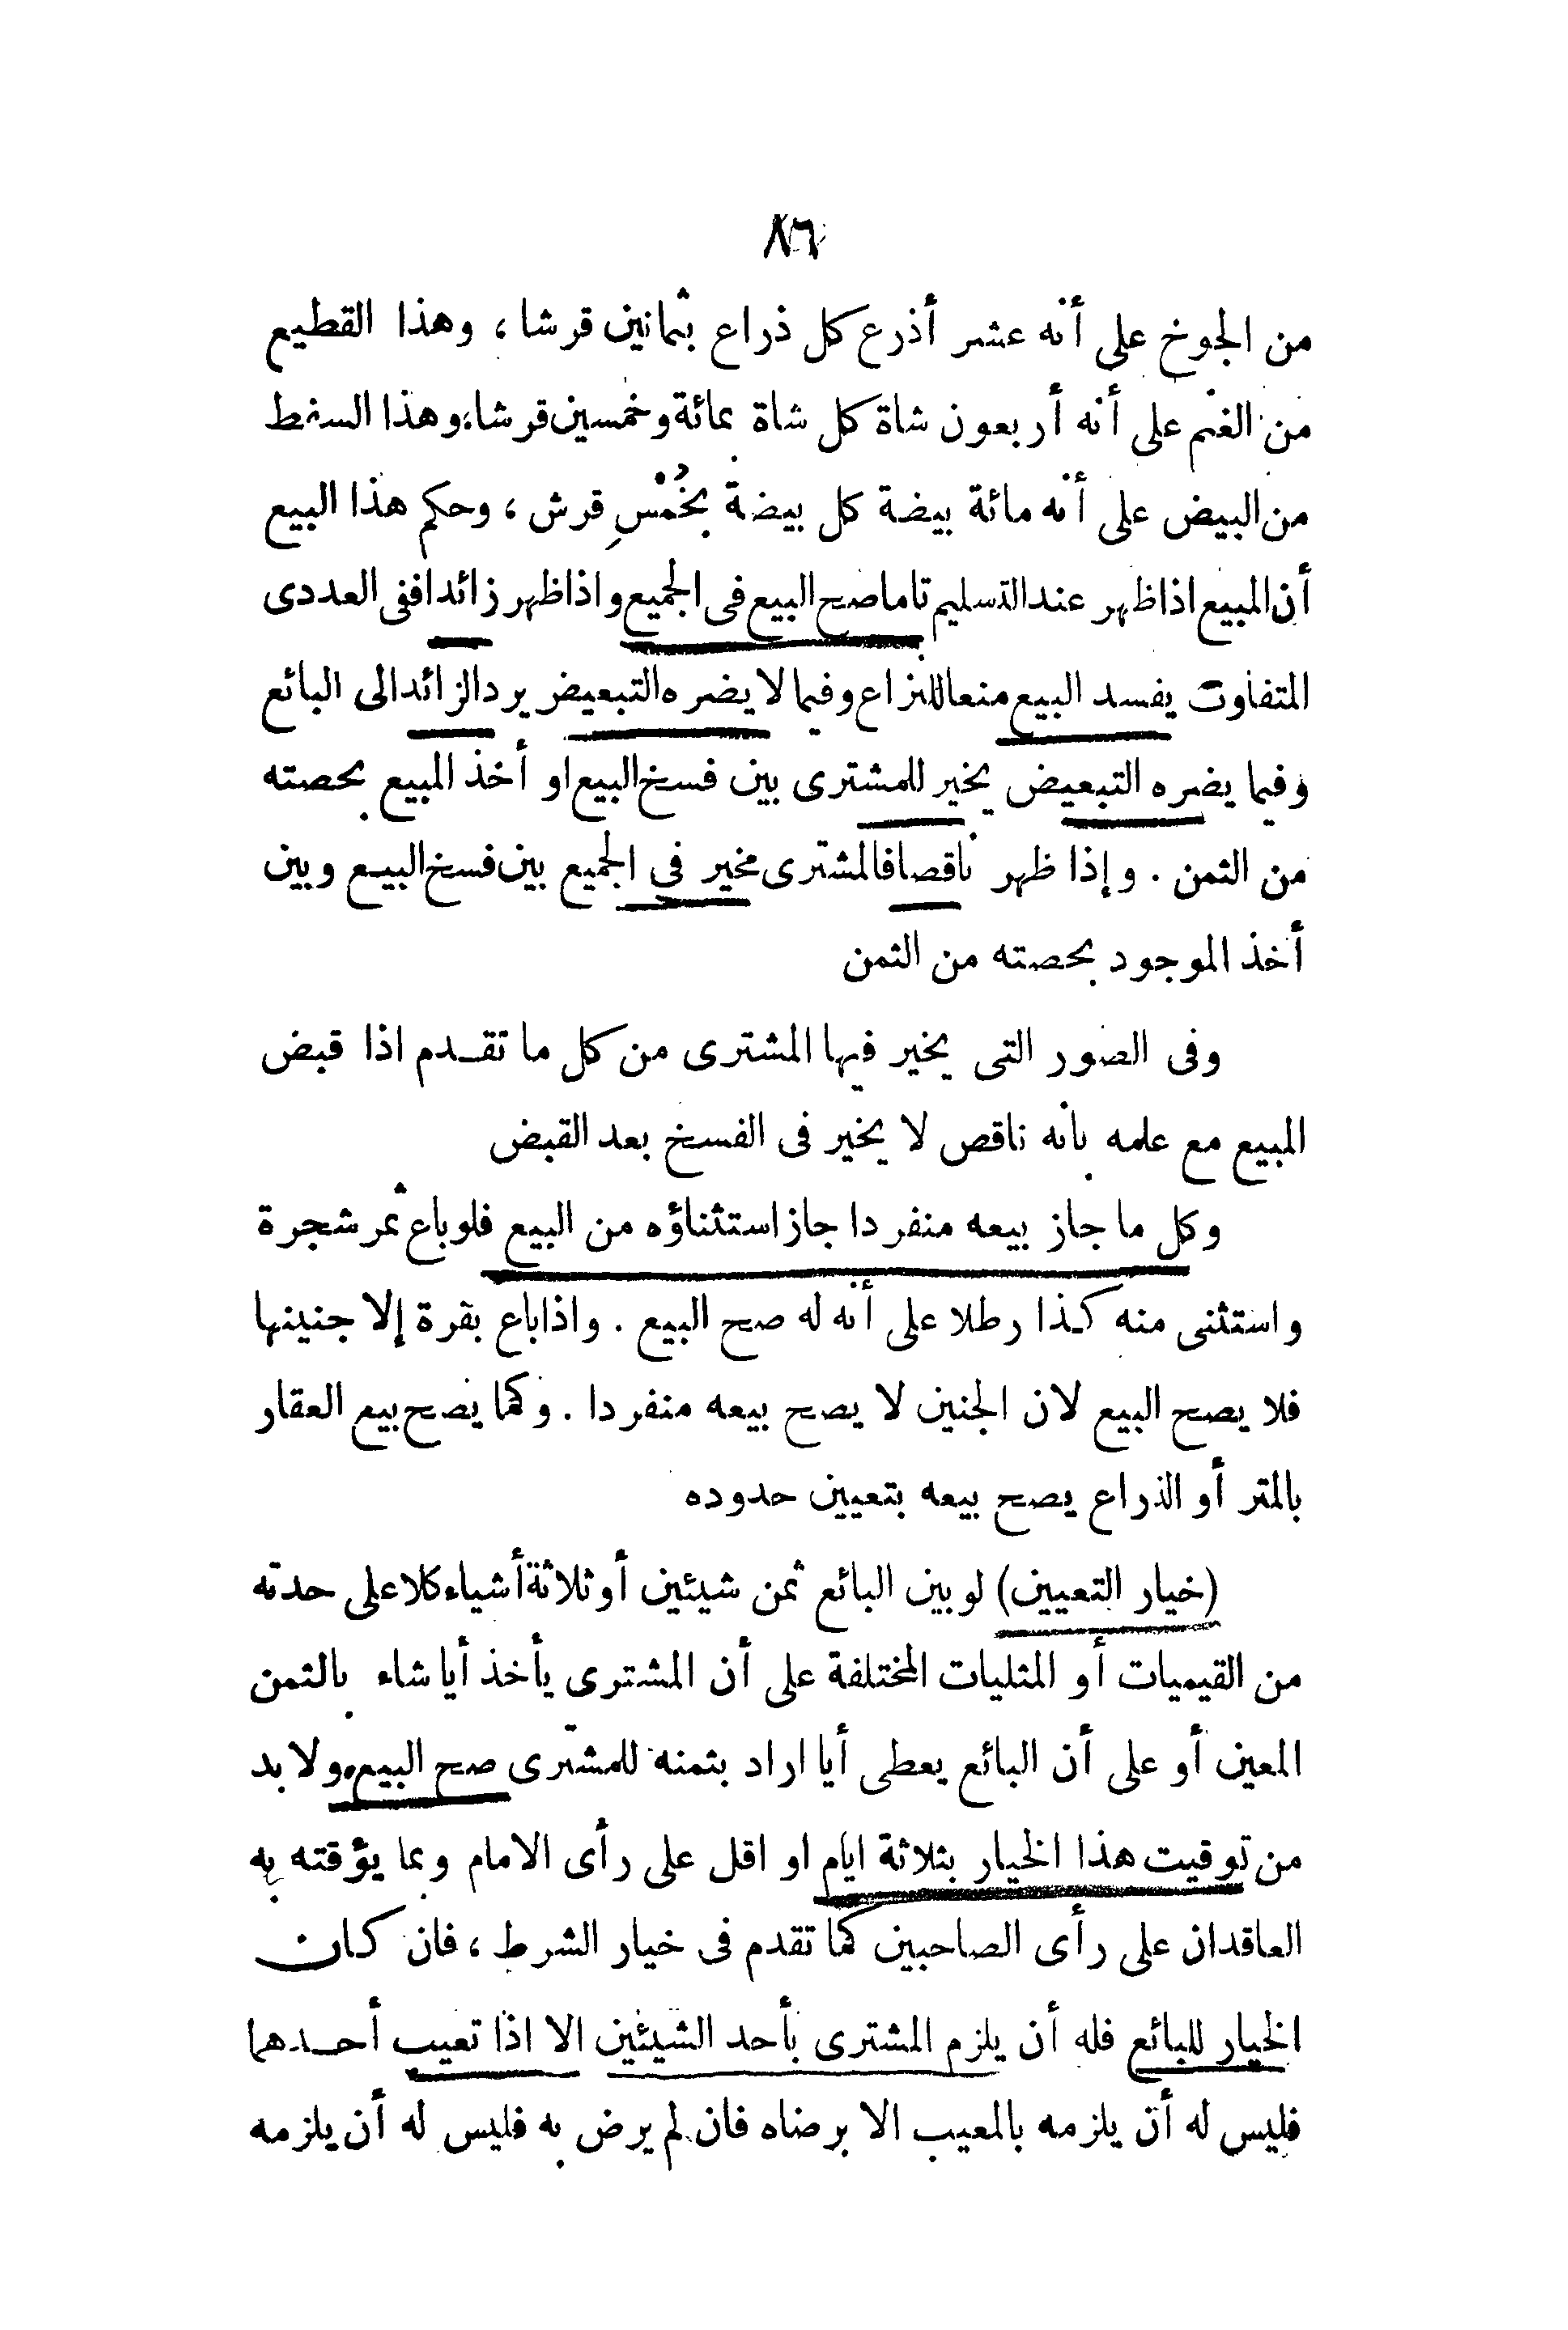 ٨٦
من الجوخ على أنه عشر أذرع كل ذراع بثمانين قرشا ، وهذا القطيع
من الغنم على أنه أربعون شاة كل شاة بمائة وخمسين قرشا، وهذا السفط
من البيض على أنه مائة بيضة كل بيضة بخُمْسِ قرش ، وحكم هذا البيع
أن المبيع اذا ظهر عند التسليم تاما صح البيع فى الجميع واذا ظهر زائدا ففى العددى
المتفاوت يفسد البيع منعا للنزاع وفيما لا يضره التبعيض يرد الزائد الى البائع
وفيما يضره التبعيض يخير للمشترى بين فسخ البيع او أخذ المبيع بحصته
من الثمن . وإذا ظهر ناقصا فالمشترى مخير فى الجميع بين فسخ البيع وبين
أخذ الموجود بحصته من الثمن
وفى الصور التى يخير فيها المشترى من كل ما تقدم اذا قبض
المبيع مع علمه بأنه ناقص لا يخير فى الفسخ بعد القبض
وكل ما جاز بيعه منفردا جاز استثناؤه من البيع فلو باع ثمر شجرة
واستثنى منه كذا رطلا على أنه له صح البيع . واذا باع بقرة إلا جنينها
فلا يصح البيع لان الجنين لا يصح بيعه منفردا . وكما يصح بيع العقار
بالمتر أو الذراع يصح بيعه بتعيين حدوده
(خيار التعيين) لو بين البائع ثمن شيئين أو ثلاثة أشياء كلا على حدته
من القيميات أو المثليات المختلفة على أن المشترى يأخذ أيا شاء بالثمن
المعين أو على أن البائع يعطى أيا اراد بثمنه للمشترى صح البيع، ولا بد
من توقيت هذا الخيار بثلاثة ايام او اقل على رأى الامام وبما يؤقته به
العاقدان على رأى الصاحبين كما تقدم فى خيار الشرط ، فان كان
الخيار للبائع فله أن يلزم المشترى بأحد الشيئين الا اذا تعيب أحدهما
فليس له أن يلزمه بالمعيب الا برضاه فان لم يرض به فليس له أن يلزمه